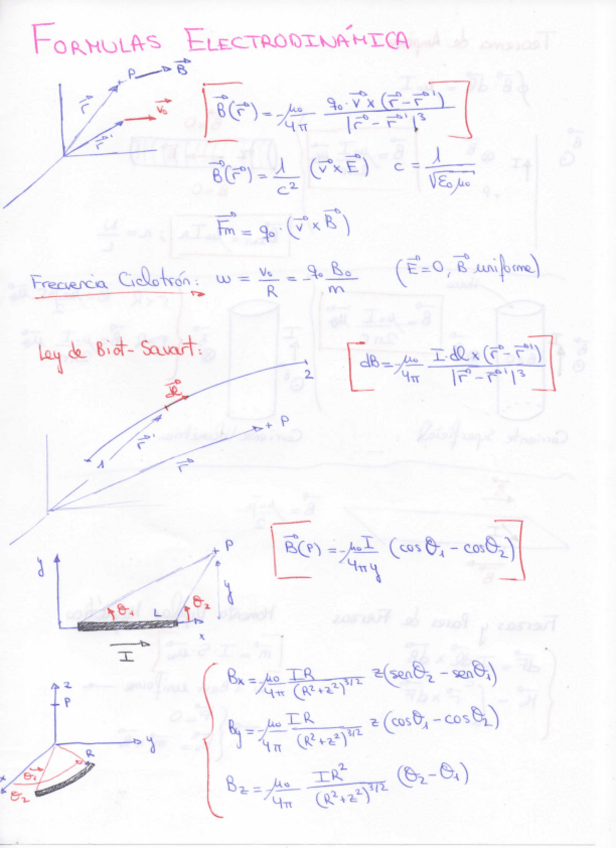 FORMULAS ELECTRODINÁMICA
P B⃗
r⃗ v⃗₀
r⃗'
B⃗(r⃗) = μ₀/4π q₀·v⃗×(r⃗-r⃗')/|r⃗-r⃗'|³
B⃗(r⃗) = 1/c² (v⃗×E⃗) c = 1/√ε₀μ₀
F⃗m = q₀·(v⃗×B⃗)
Frecuencia Ciclotrón: w = v₀/R = -q₀ B₀/m (E⃗=0, B⃗ uniforme)
Ley de Biot-Savart:
dB = μ₀/4π I·dl×(r⃗-r⃗')/|r⃗-r⃗'|³
dl⃗ 2
1 r⃗' r⃗ P
B⃗(P) = μ₀I/4πy (cosθ₁ - cosθ₂)
y P
y
θ₁ L θ₂ x
I
Bx = μ₀/4π IR/(R²+z²)^3/2 z(senθ₂ - senθ₁)
By = μ₀/4π IR/(R²+z²)^3/2 z(cosθ₁ - cosθ₂)
Bz = μ₀/4π IR²/(R²+z²)^3/2 (θ₂ - θ₁)
z
P
y
x θ₁ R
θ₂